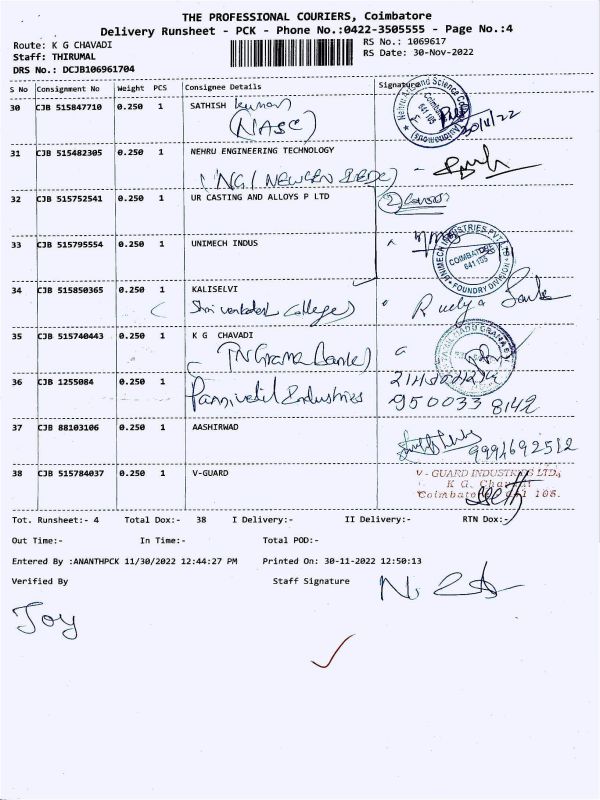 THE PROFESSIONAL COURIERS, Coimbatore
Delivery Runsheet - PCK - Phone No.:0422-3505555 - Page No.:4
Route: K G CHAVADI
RS No.: 1069617
Staff: THIRUMAL
RS Date: 30-Nov-2022
DRS No.: DCJB106961704
S No Consignment No Weight PCS Consignee Details Signature
30 CJB 515847710 0.250 1 SATHISH kumar
(NASC)
30/11/22
31 CJB 515482305 0.250 1 NEHRU ENGINEERING TECHNOLOGY
32 CJB 515752541 0.250 1 UR CASTING AND ALLOYS P LTD
33 CJB 515795554 0.250 1 UNIMECH INDUS
UNIMECH INDUSTRIES PVT. LTD
COIMBATORE
641 105
FOUNDRY DIVISION
34 CJB 515850365 0.250 1 KALISELVI
Shri venkatesh College)
35 CJB 515740443 0.250 1 K G CHAVADI
(TN Grama Bank)
36 CJB 1255084 0.250 1 Industries
950033 8142
37 CJB 88103106 0.250 1 AASHIRWAD
9991692512
38 CJB 515784037 0.250 1 V-GUARD
V - GUARD INDUSTRIES LTD,
K G. Chavadi
Coimbatore 641 105.
Tot. Runsheet:- 4 Total Dox:- 38 I Delivery:- II Delivery:- RTN Dox:-
Out Time:- In Time:- Total POD:-
Entered By :ANANTHPCK 11/30/2022 12:44:27 PM Printed On: 30-11-2022 12:50:13
Verified By Staff Signature
Joy